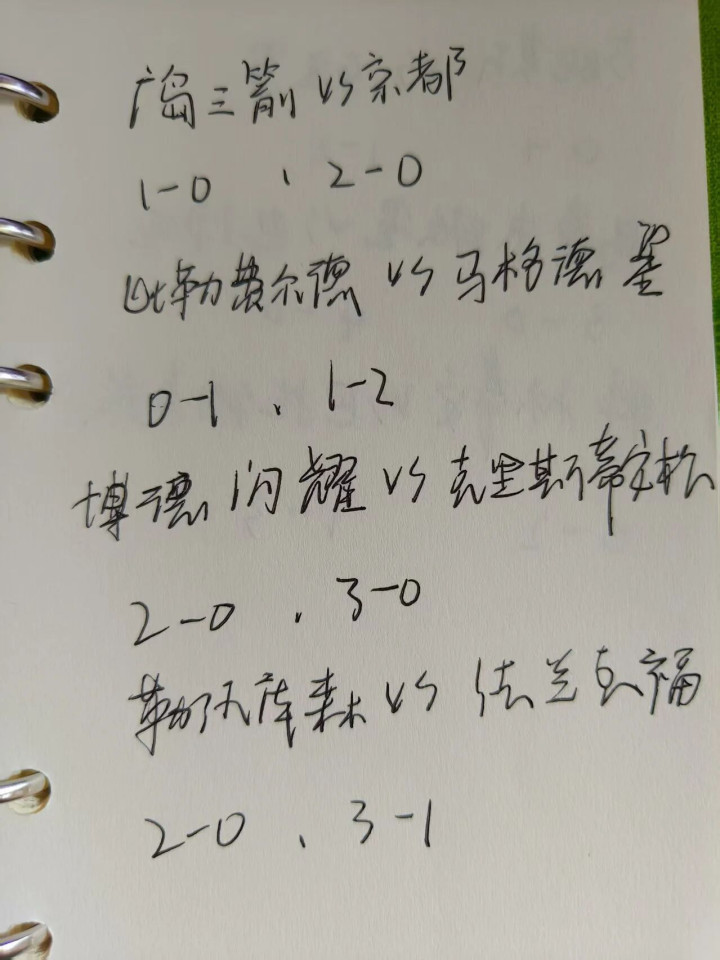 广岛三箭 VS 京都
1-0 、 2-0
比勒费尔德 VS 马格德堡
0-1 、 1-2
博德闪耀 VS 克里斯蒂安松
2-0 、 3-0
勒沃库森 VS 法兰克福
2-0 、 3-1